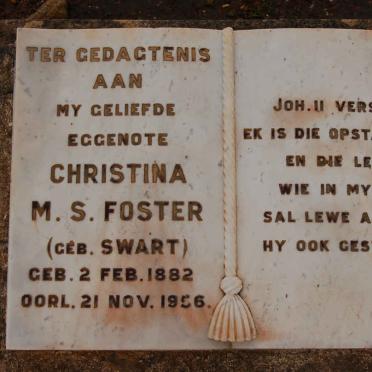 TER GEDAGTENIS
AAN
MY GELIEFDE
EGGENOTE
CHRISTINA
M. S. FOSTER
(GEB. SWART)
GEB. 2 FEB. 1882
OORL. 21 NOV. 1956.
JOH. 11 VERS
EK IS DIE OPST
EN DIE LE
WIE IN MY
SAL LEWE A
HY OOK GEST